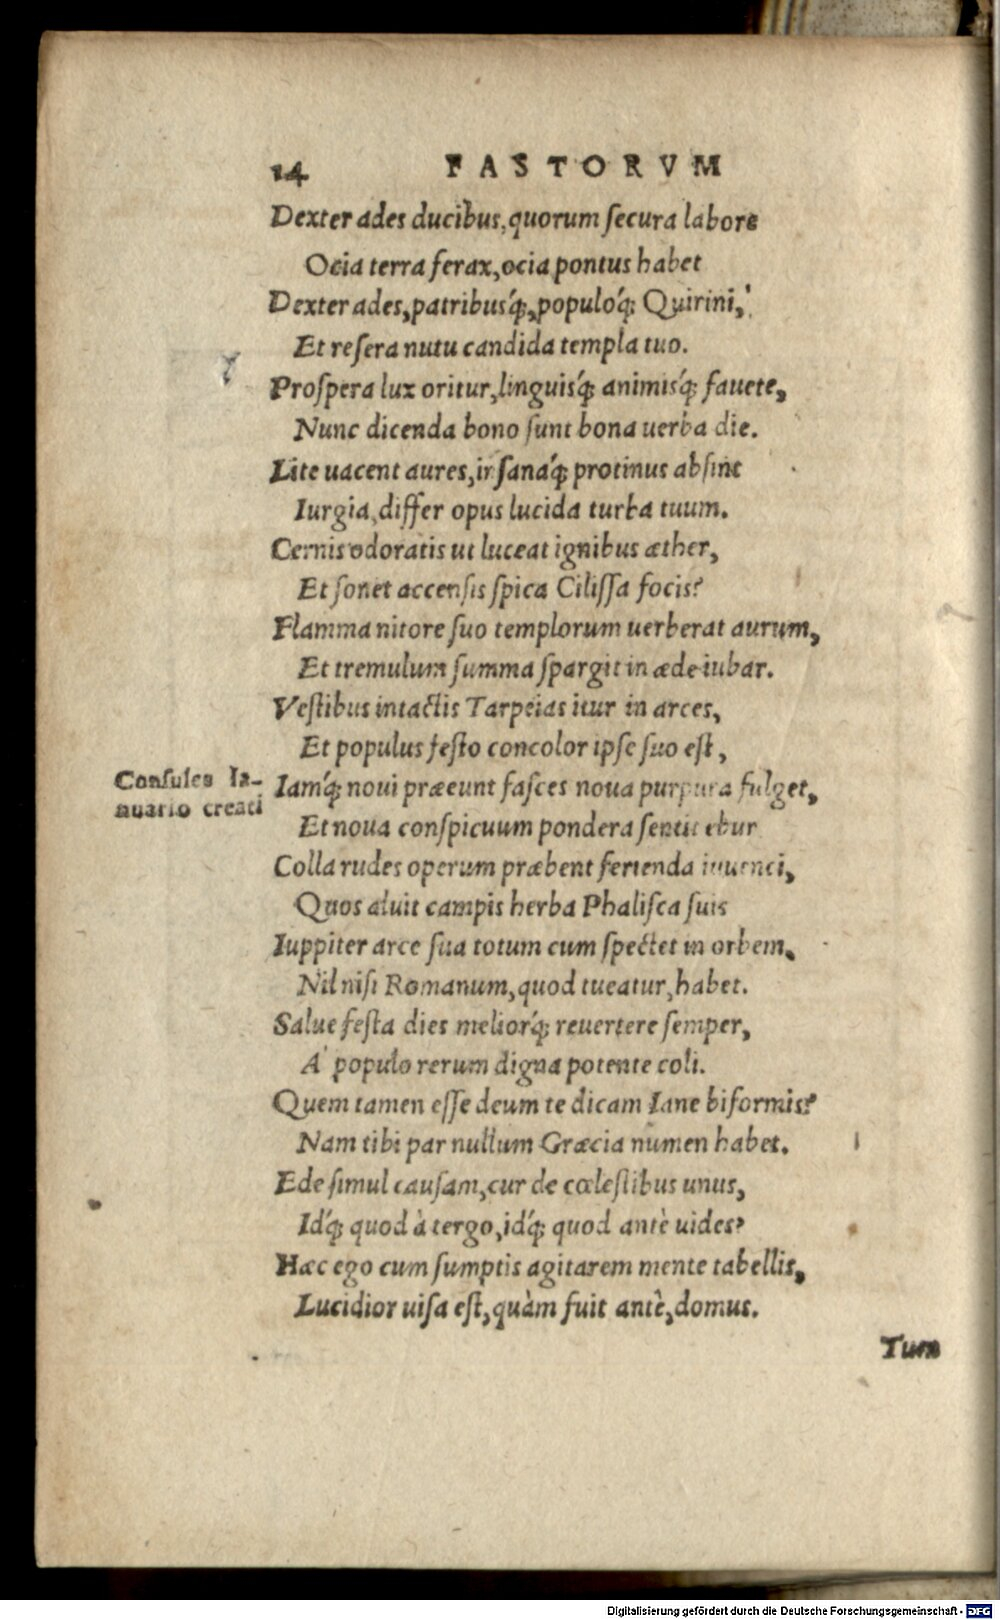 14 FASTORVM
Dexter ades ducibus, quorum secura labore
Ocia terra ferax, ocia pontus habet
Dexter ades, patribusq́;, populoq́; Quirini,
Et resera nutu candida templa tuo.
Prospera lux oritur, linguisq́; animisq́; fauete,
Nunc dicenda bono sunt bona uerba die.
Lite uacent aures, insanaq́; protinus absint
Iurgia, differ opus lucida turba tuum.
Cernis odoratis ut luceat ignibus æther,
Et sonet accensis spica Cilissa focis?
Flamma nitore suo templorum uerberat aurum,
Et tremulum summa spargit in æde iubar.
Vestibus intactis Tarpeias itur in arces,
Et populus festo concolor ipse suo est,
Consules Ia-
nuario creati
Iamq́; noui præeunt fasces noua purpura fulget,
Et noua conspicuum pondera sentit ebur
Colla rudes operum præbent ferienda iuuenci,
Quos aluit campis herba Phalisca suis
Iuppiter arce sua totum cum spectet in orbem,
Nil nisi Romanum, quod tueatur, habet.
Salue festa dies meliorq́; reuertere semper,
A' populo rerum digna potente coli.
Quem tamen esse deum te dicam Iane biformis?
Nam tibi par nullum Græcia numen habet.
Ede simul causam, cur de cœlestibus unus,
Idq́; quod à tergo, idq́; quod antè uides?
Hæc ego cum sumptis agitarem mente tabellis,
Lucidior uisa est, quàm fuit antè, domus.
Tum
Digitalisierung gefördert durch die Deutsche Forschungsgemeinschaft - DFG